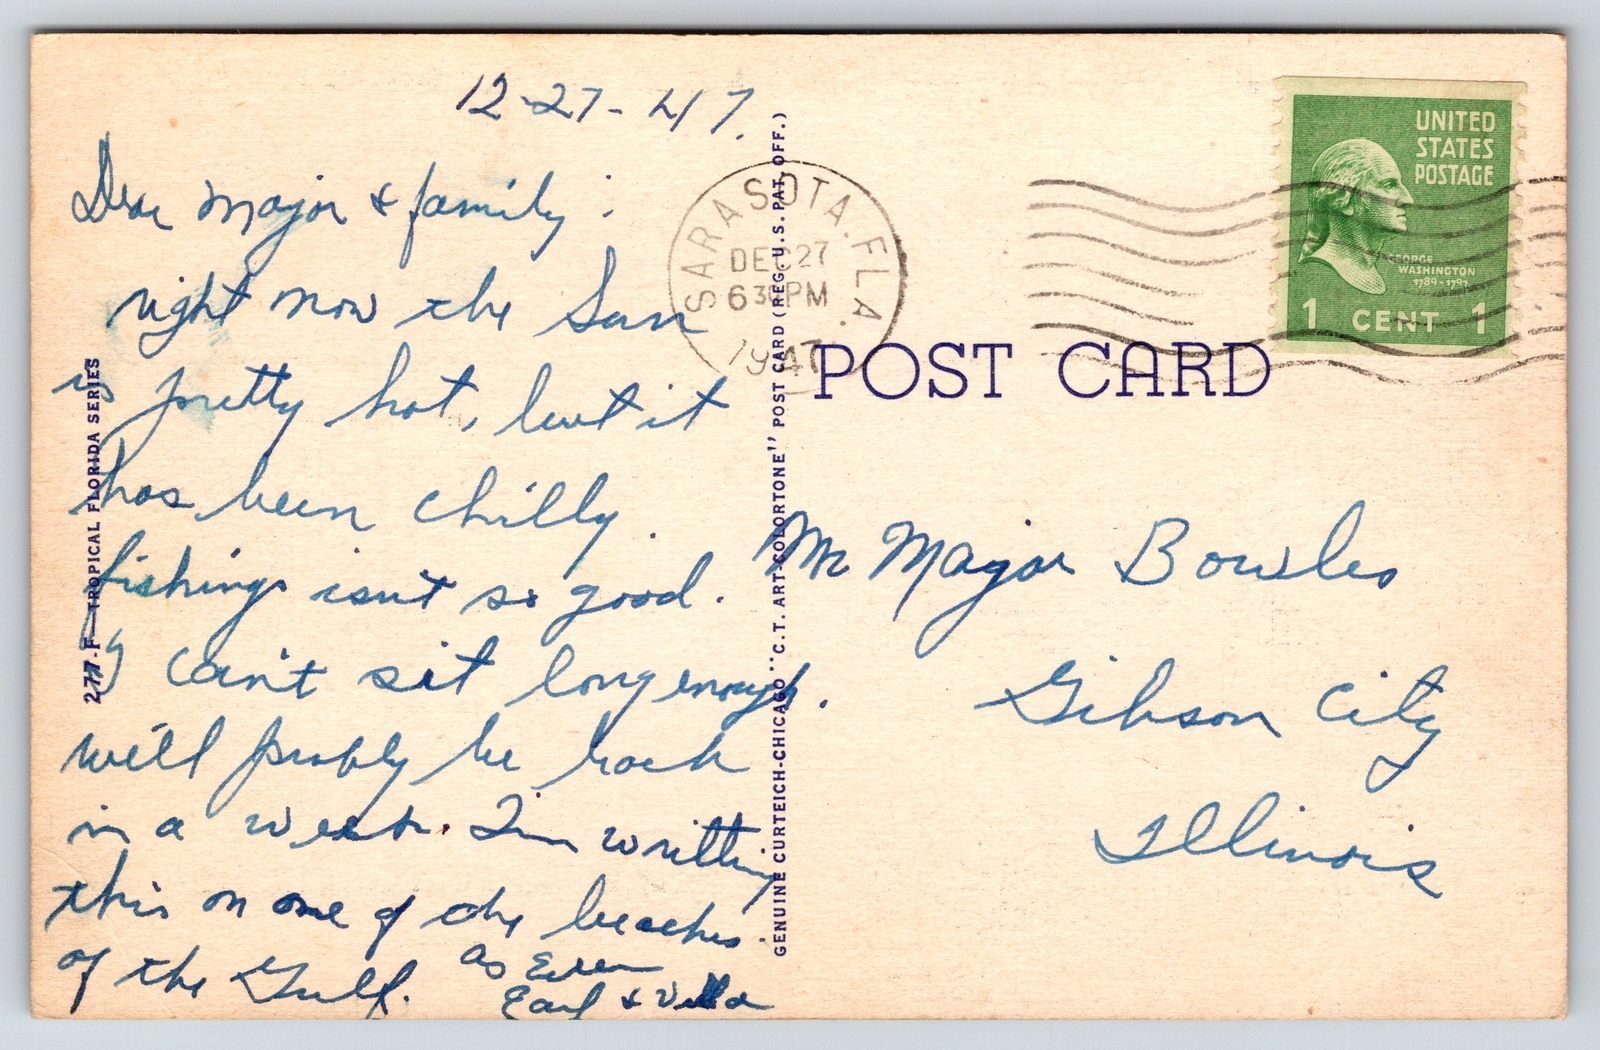 12-27-47.
Dear Major & family:
right now the Sun
is pretty hot, but it
has been chilly.
fishings isn't so good.
I can't sit long enough.
will probly be back
in a week. I'm writting
this on one of the beaches.
of the Gulf. As Ever
Earl & Villa
277-F—TROPICAL FLORIDA SERIES
GENUINE CURTEICH-CHICAGO "C.T. ART-COLORTONE" POST CARD (REG. U.S. PAT. OFF.)
SARASOTA. FLA.
DEC 27
6 30 PM
1947
UNITED
STATES
POSTAGE
GEORGE
WASHINGTON
1789-1797
1 CENT 1
POST CARD
Mr Major Bowles
Gibson City
Illinois